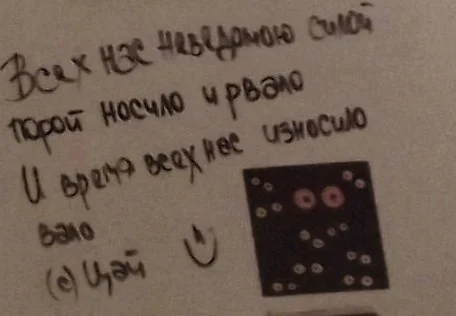 Всех нас неведомою силой
порой носило и рвало
И время всех нас износило
вало
(с) Цэй